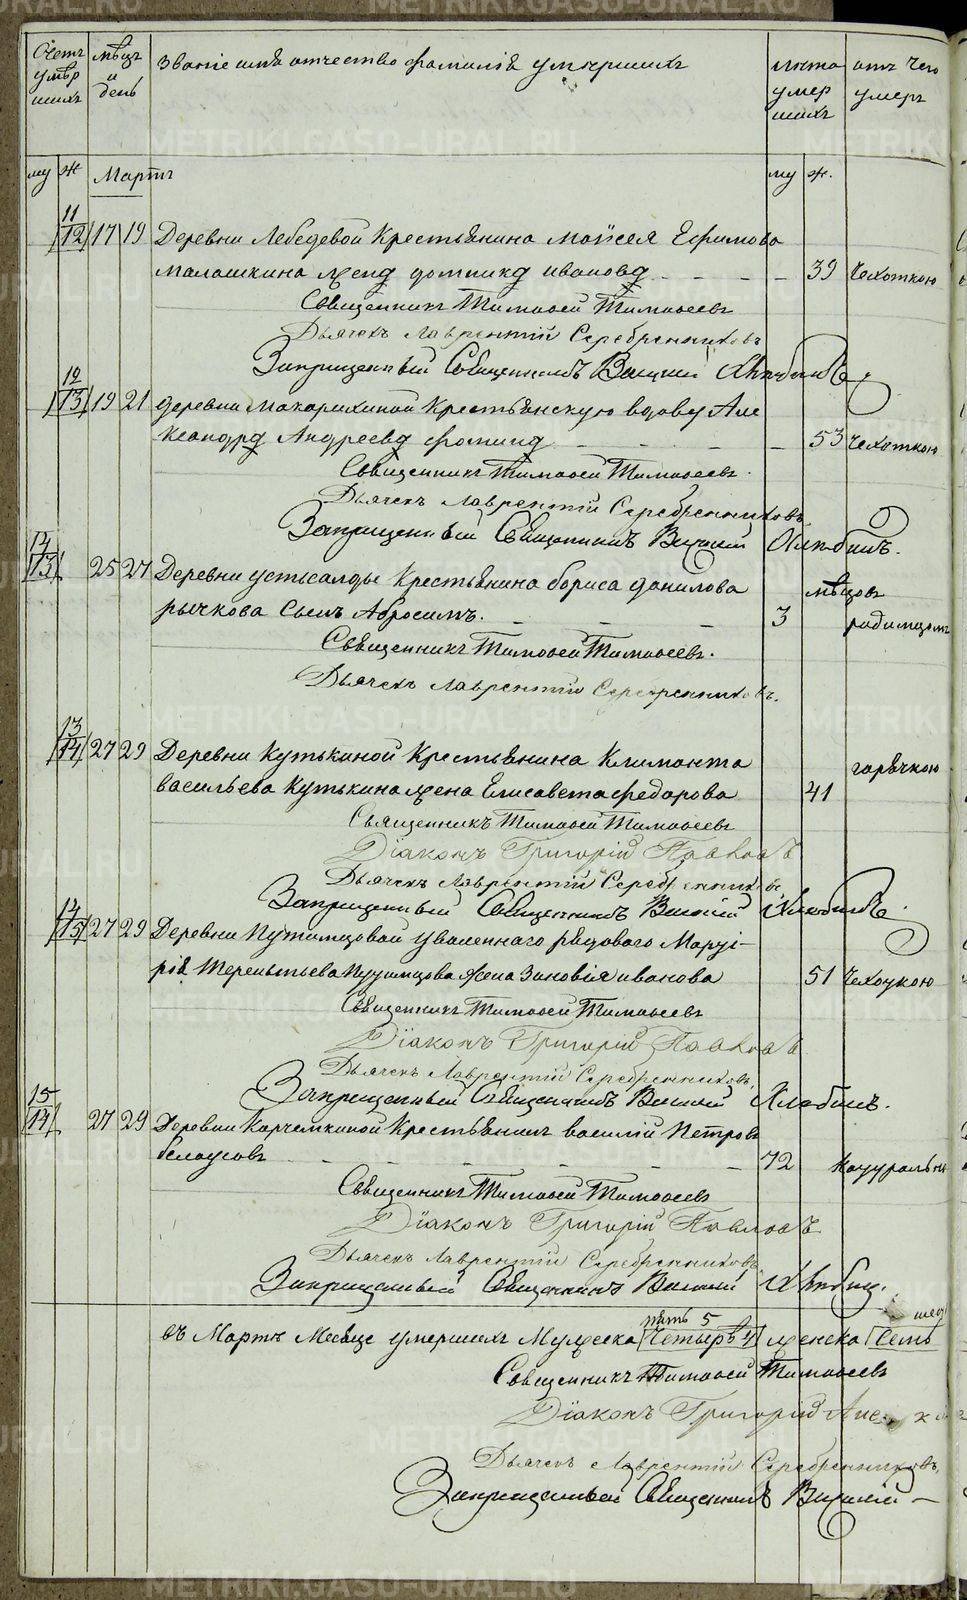 Счетъ умѣр шихъ
мѣцъ и день
Званіе имя отчество фамилія умершихъ
лѣта умер шихъ
отъ чего умеръ
му ж Мартъ му ж.
11
12 17 19 Деревни Лебедевой Крестьянина Моисея Ефимова
Малашкина жена Домника Иванова 39 Чехоткою
Священникъ Тимофей Тимофеевъ
Дьячекъ Лаврентій Серебренниковъ
Запрещенный Священникъ Василій Хлѣбинъ
12
13 19 21 деревни Макарихиной Крестьянскую вдову Але
ксандра Андреева Фомина 53 Чехоткою
Священникъ Тимофей Тимофеевъ
Дьячекъ Лаврентій Серебренниковъ
Запрещенный Священникъ Василій Хлѣбинъ.
14
13 25 27 Деревни Устьсалды Крестьянина Бориса Данилова мѣцовъ
рычкова Сынъ Абросимъ. 3 родимцомъ
Священникъ Тимофей Тимофеевъ.
Дьячекъ Лаврентій Серебренниковъ.
13
14 27 29 Деревни Кутькиной Крестьянина Климонта горячкою
васильева Кутькина жена Елисавета федорова 41
Священникъ Тимофей Тимофеевъ
Діаконъ Григорій Павловъ
Дьячекъ Лаврентій Серебренниковъ
Запрещенный Священникъ Василій Хлѣбинъ
14
15 27 29 Деревни Путимцовой уволеннаго рядового
Терентьева Путимцова жена Зиновія иванова 51 Чехоткою
Священникъ Тимофей Тимофеевъ
Діаконъ Григорій Павловъ
Дьячекъ Лаврентій Серебренниковъ.
Запрещенный Священникъ Василій Хлебинъ.
15
14 27 29 Деревни Корчемкиной Крестьянинъ василій Петровъ
белоусовъ 72 Натуральны
Священникъ Тимофей Тимофеевъ
Діаконъ Григорій Павловъ
Дьячекъ Лаврентій Серебренниковъ
Запрещенный Священникъ Василій Хлѣбин.
пять 5
въ Мартѣ Месяце умершихъ Мужеска Четыре 4 женска Семь
Священникъ Тимофей Тимофеевъ
Діаконъ Григорій
Дьячекъ Лаврентій Серебренниковъ
Запрещенный Священникъ Василій
METRIKI.GASO-URAL.RU